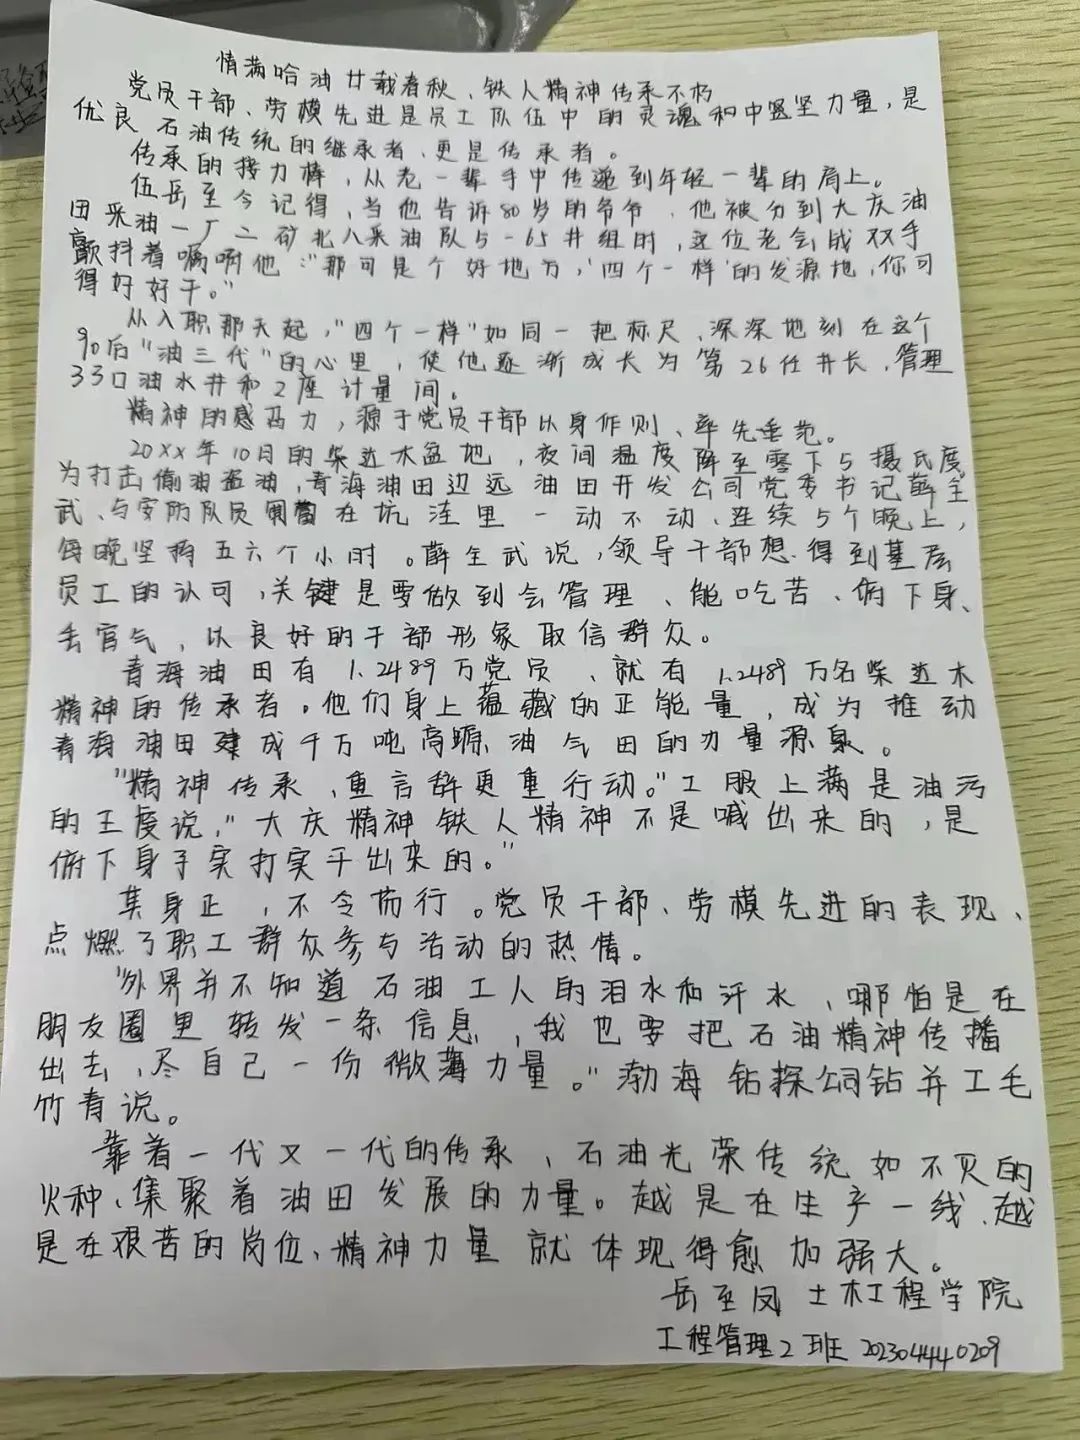 情满哈油廿载春秋、铁人精神传承不朽
党员干部、劳模先进是员工队伍中的灵魂和中坚力量,是
优良石油传统的继承者、更是传承者。
传承的接力棒,从老一辈手中传递到年轻一辈的肩上。
伍岳至今记得,当他告诉80岁的爷爷,他被分到大庆油
田采油一厂二矿北八采油队5-65井组时,这位老会战双手
颤抖着嘱咐他:"那可是个好地方,'四个一样'的发源地,你可
得好好干。"
从入职那天起,"四个一样"如同一把标尺、深深地刻在这个
90后"油三代"的心里,使他逐渐成长为第26任井长,管理
33口油水井和2座计量间。
精神的感召力,源于党员干部以身作则、率先垂范。
20××年10月的柴达木盆地,夜间温度降至零下5摄氏度
为打击偷油盗油,青海油田边远油田开发公司党委书记薛生
武、与安防队员 在坑洼里一动不动、连续5个晚上,
每晚坚持五六个小时。薛生武说,领导干部想得到基层
员工的认可,关键是要做到会管理、能吃苦、俯下身、
丢官气,以良好的干部形象取信群众。
青海油田有1.2489万党员、就有1.2489万名柴达木
精神的传承者。他们身上蕴藏的正能量,成为推动
青海油田建成千万吨高原油气田的力量源泉。
"精神传承,重言辞更重行动。"工服上满是油污
的王虔说,"大庆精神铁人精神不是喊出来的,是
俯下身子实打实干出来的。"
其身正,不令而行。党员干部、劳模先进的表现、
点燃了职工群众参与活动的热情。
"外界并不知道石油工人的泪水和汗水,哪怕是在
朋友圈里转发一条信息,我也要把石油精神传播
出去,尽自己一份微薄力量。"渤海钻探公司钻井工毛
竹青说。
靠着一代又一代的传承、石油光荣传统如不灭的
火种、集聚着油田发展的力量。越是在生产一线、越
是在艰苦的岗位、精神力量就体现得愈加强大。
岳至凤 土木工程学院
工程管理2班 202304440209